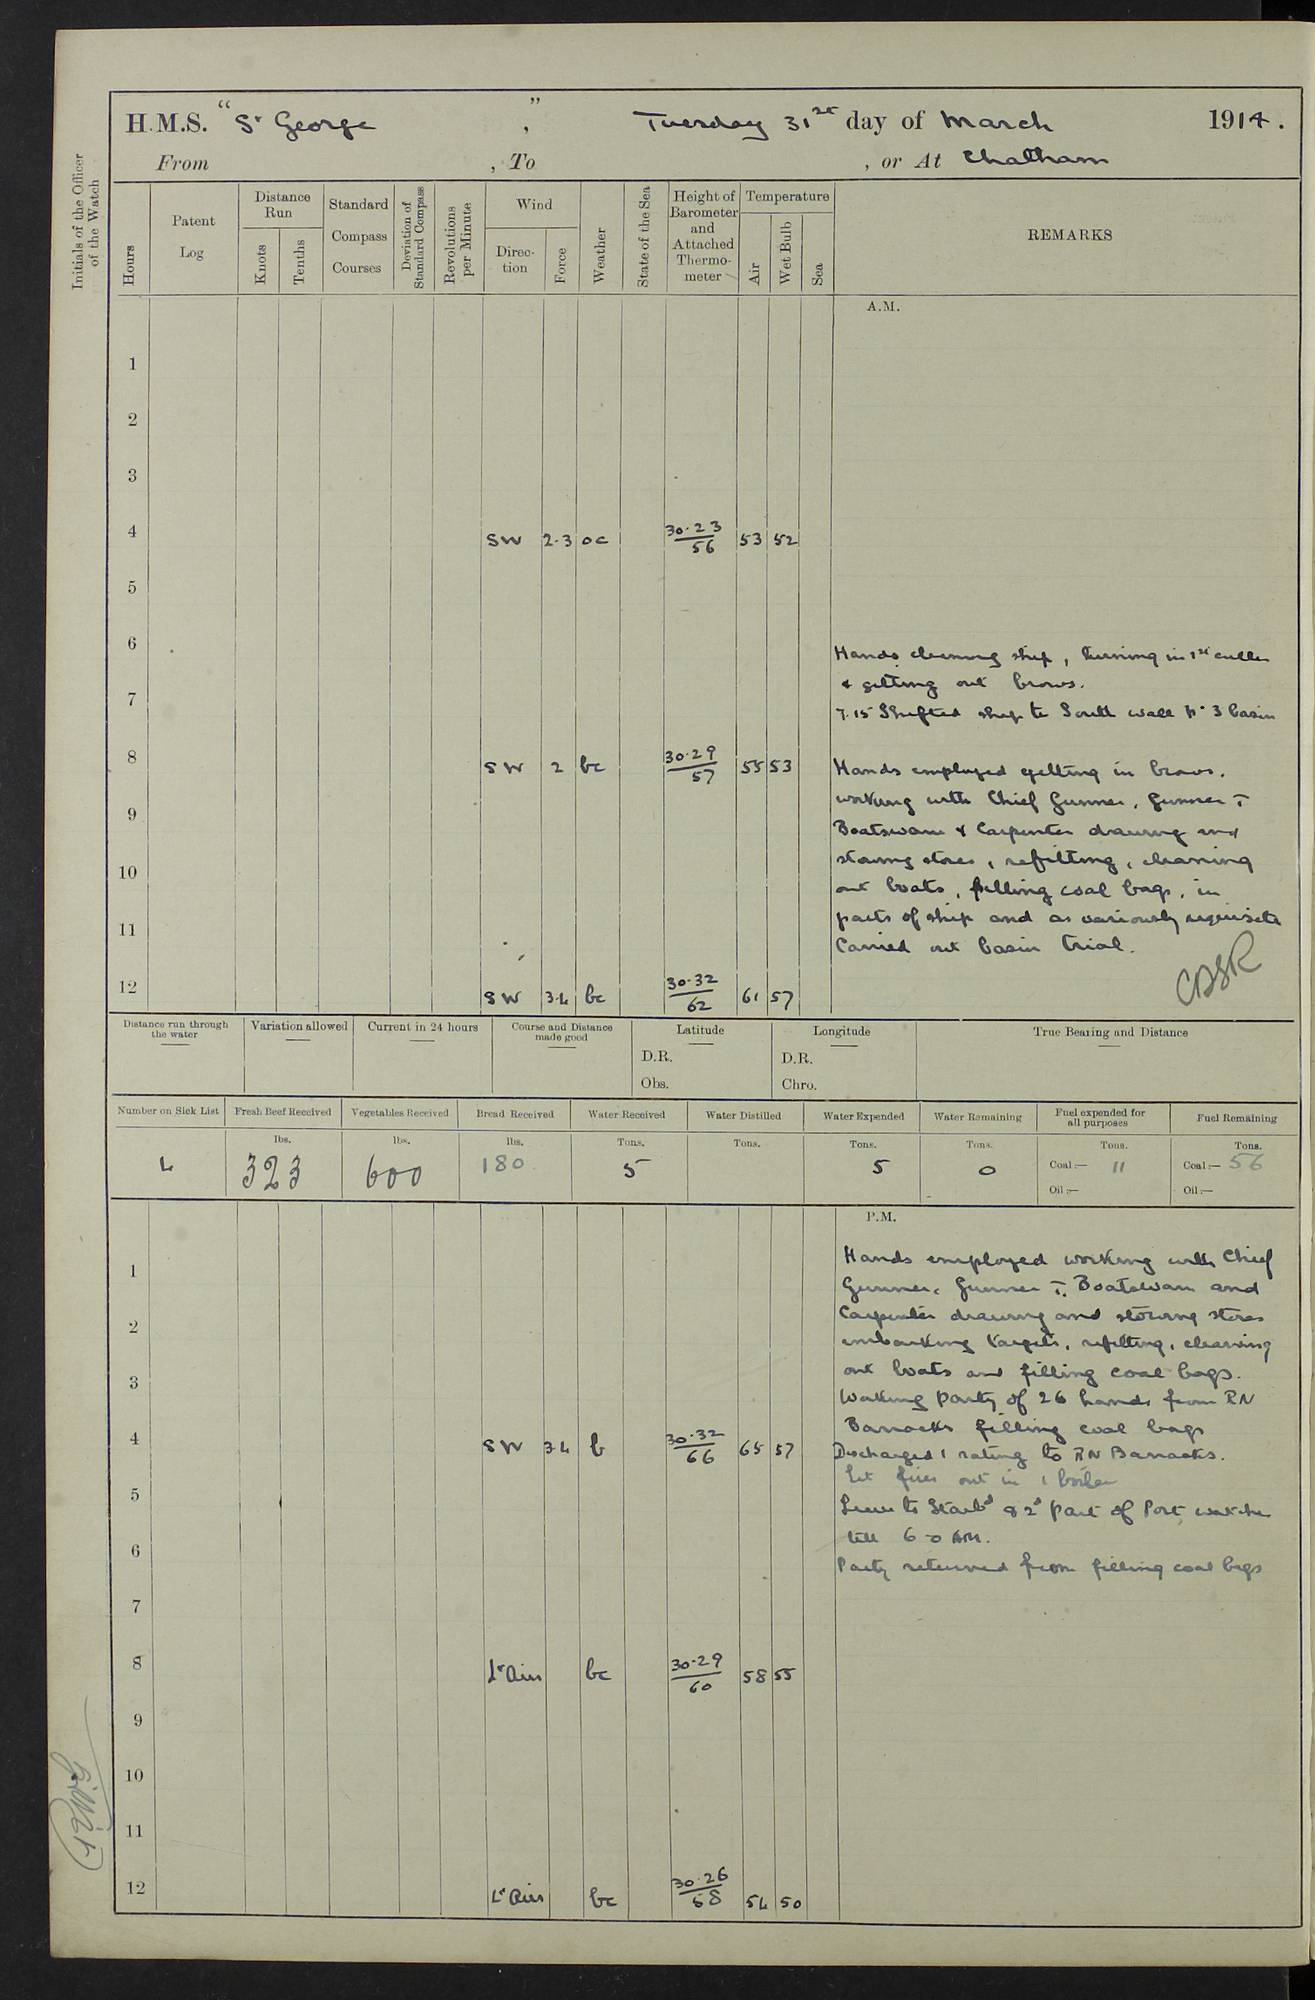 H.M.S. "St George", Tuesday 31st day of March 1914.
From , To , or At Chatham
Initials of the Officer of the Watch
Hours
Patent Log
Distance Run
Knots
Tenths
Standard Compass Courses
Deviation of Standard Compass
Revolutions per Minute
Wind
Direction
Force
Weather
State of the Sea
Height of Barometer and Attached Thermometer
Temperature
Air
Wet Bulb
Sea
REMARKS
A.M.
1
2
3
4 SW 2.3 oc 30.23/56 53 52
5
6
Hands cleaning ship, turning in 1st cutter
& getting out brows.
7
7.15 Shifted ship to South wall No 3 basin
8 SW 2 bc 30.29/57 55 53
Hands employed getting in brows.
working with Chief Gunner, Gunner T
9
Boatswain & Carpenter drawing and
stowing stores, refitting, cleaning
10
out boats, filling coal bags, in
parts of ship and as variously requisite
11
Carried out basin trial.
12 SW 3.4 bc 30.32/62 61 57
Distance run through the water
Variation allowed
Current in 24 hours
Course and Distance made good
Latitude
D.R.
Obs.
Longitude
D.R.
Chro.
True Bearing and Distance
Number on Sick List
4
Fresh Beef Received
lbs.
323
Vegetables Received
lbs.
600
Bread Received
lbs.
180
Water Received
Tons.
5
Water Distilled
Tons.
Water Expended
Tons.
5
Water Remaining
Tons.
0
Fuel expended for all purposes
Tons.
Coal:— 11
Oil:—
Fuel Remaining
Tons.
Coal:— 56
Oil:—
P.M.
Hands employed working with Chief
1
Gunner, Gunner T, Boatswain and
Carpenter drawing and stowing stores
2
embarking targets, refitting, cleaning
out boats and filling coal bags.
3
Working party of 26 hands from RN
Barracks filling coal bags
4 SW 3.4 b 30.32/66 65 57
Discharged 1 rating to RN Barracks.
Let fires out in 1 boiler
5
Leave to Starbd & 2d part of Port watches
till 6-0 AM.
6
Party returned from filling coal bags
7
8 Lt Airs bc 30.29/60 58 55
9
10
11
12 Lt Airs bc 30.26/58 54 50